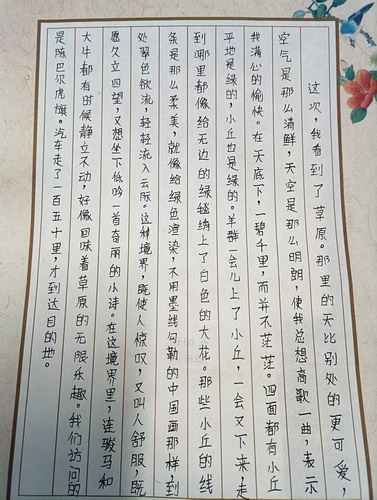 这次，我看到了草原。那里的天比别处的更可爱，
空气是那么清鲜，天空是那么明朗，使我总想高歌一曲，表示
我满心的愉快。在天底下，一碧千里，而并不茫茫。四面都有小丘
平地是绿的，小丘也是绿的。羊群一会儿上了小丘，一会又下来走
到哪里都像给无边的绿毯绣上了白色的大花。那些小丘的线
条是那么柔美，就像给绿色渲染，不用墨线勾勒的中国画那样，到
处翠色欲流，轻轻流入云际。这种境界，既使人惊叹，又叫人舒服，既
愿久立四望，又想坐下低吟一首奇丽的小诗。在这境界里，连骏马和
大牛都有时候静立不动，好像回味着草原的无限乐趣。我们访问的
是陈巴尔虎旗。汽车走了一百五十里，才到达目的地。